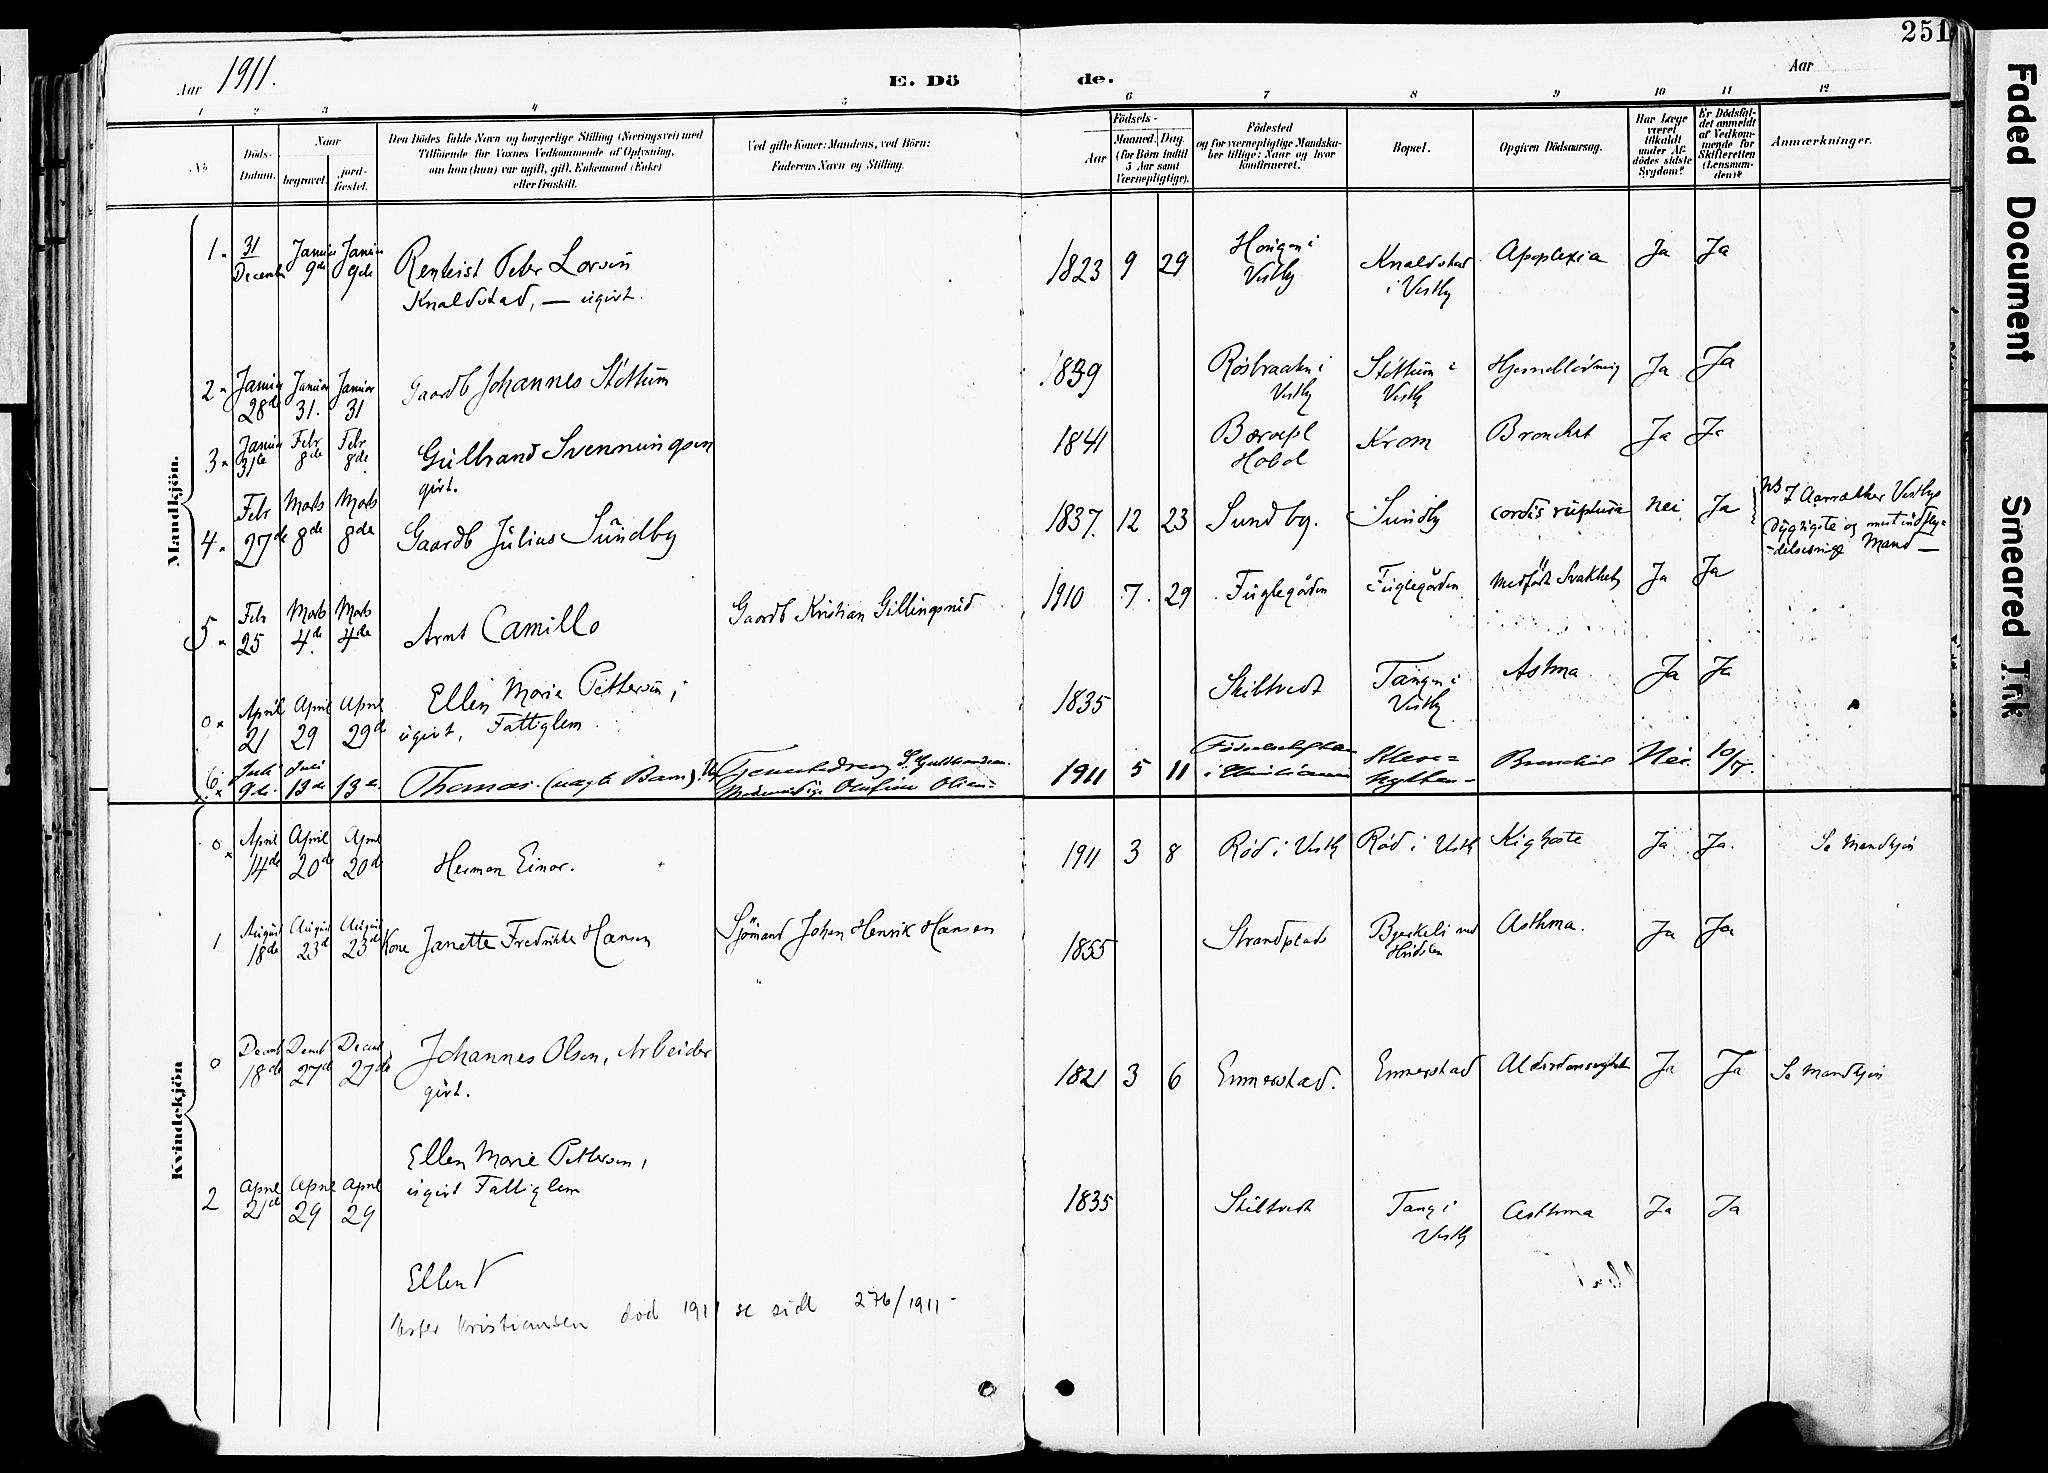 251
Aar 1911.
E. Dö de.
Aar
1 2 3 4 5 6 7 8 9 10 11 12
No
Döds-Datum.
Naar
begravet.
jord-fæstet.
Den Dödes fulde Navn og borgerlige Stilling (Næringsvei) med
Tilföiende for Voxnes Vedkommende af Oplysning,
om han (hun) var ugift, gift, Enkemand (Enke)
eller fraskilt.
Ved gifte Koner: Mandens, ved Börn:
Faderens Navn og Stilling.
Födsels-
Aar
Maaned. Dag.
(for Börn indtil
5 Aar samt
Værnepligtige).
Födested
og for værnepligtige Mandska-
ber tillige: Naar og hvor
konfirmeret.
Bopæl.
Opgiven Dödsaarsag.
Har Læge
været
tilkaldt
under Af-
dödes sidste
Sygdom?
Er Dödsfal-
det anmeldt
af Vedkom-
mende for
Skifteretten
(Lensman-
den)?
Anmærkninger.
Mandkjön.
1. 31 December Januar 9de Januar 9de Rentist Peter Larsen
Knaldstad, — ugivt.
1823 9 29 Vestby Knaldstad i Vestby Apoplexia Ja Ja
2. Januar 28de Januar 31. Januar 31 Gaardb Johannes Støttum
1839 Vestby Støttum i Vestby Ja Ja
3. Januar 31te Febr 8de Febr 8de Gulbrand Svenningsen
givt.
1841 Hobøl Krom Bronchit Ja Ja
4. Febr 27de Marts 8de Marts 8de Gaardb Julius Sundby
1837. 12 23 Sundby. Sundby cordis ruptura nei Ja NB I Aarrækker Vestbys
dygtigste og mest indfly-
-delsesrige Mand —
5. Febr 25 Marts 4de Marts 4de Arnt Camillo Gaardb Kristian
1910 7. 29 Fuglegården Fuglegården Medfødt Svakhet Ja Ja
0. April 21 April 29 April 29de Ellen Marie Pettersen,
ugivt, Fattiglem
1835 Skiltvedt Tangen i Vestby Astma Ja Ja
6. Juli 9de Juli 13de 13de Thomas (uægte Barn).
1911 5 11 Nei 10/7.
Kvindekjön
0. April 14de April 20de April 20de Herman Einar.
1911 3 8 Rød i Vestb Rød i Vestb Kighoste Ja Ja. Se Mandkjøn
1 August 18de August 23d August 23d Kone Janette Fredrikke Hansen Sjømand Johan Henrik Hansen
1855 Strandplads Asthma. Ja Ja
0 Decemb 18de Decemb 27de Decemb 27de Johannes Olsen, Arbeider
givt.
1821 3 6 Emmerstad. Emmerstad Alderdomssvaghet Ja Ja Se Mandkjøn
2 April 21de April 29 April 29 Ellen Marie Pettersen,
ugivt Fattiglem
1835 Skiltvedt Tang i Vestby Asthma Ja Ja
Ellen
Kristiansen død 1911 se side 276/1911 -
Faded Document
Smeared T.nk